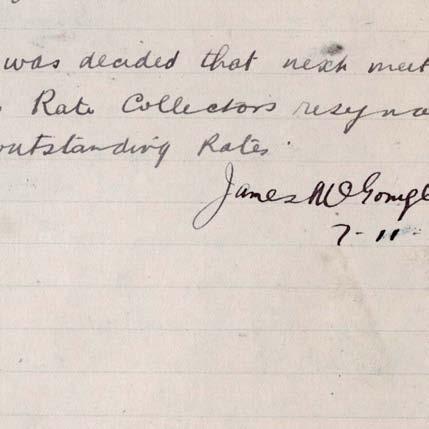 was decided that next meet
Rate Collectors resigna
outstanding Rates.
James McGonigl
7-11-